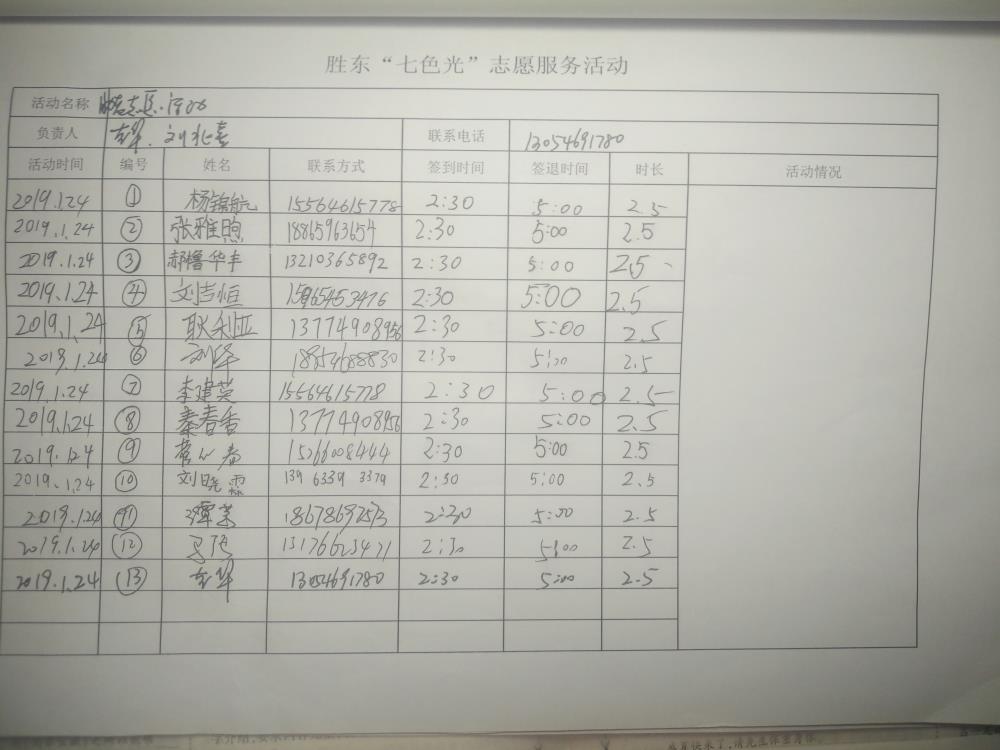 胜东“七色光”志愿服务活动
活动名称
负责人 刘兆喜 联系电话 13054691780
活动时间 编号 姓名 联系方式 签到时间 签退时间 时长 活动情况
2019.1.24 ① 杨锦航 15564615778 2:30 5:00 2.5
2019.1.24 ② 张雅煦 18865963654 2:30 5:00 2.5
2019.1.24 ③ 郝鲁华丰 13210365892 2:30 5:00 2.5
2019.1.24 ④ 刘吉恒 2:30 5:00 2.5
2019.1.24 ⑤ 耿利亚 13774908956 2:30 5:00 2.5
2019.1.24 ⑥ 18854688830 2:30 5:00 2.5
2019.1.24 ⑦ 李建英 15564615778 2:30 5:00 2.5
2019.1.24 ⑧ 秦春香 13774908956 2:30 5:00 2.5
2019.1.24 ⑨ 15266008444 2:30 5:00 2.5
2019.1.24 ⑩ 刘晓霖 139 6339 3379 2:30 5:00 2.5
2019.1.24 ⑪ 2:30 5:00 2.5
2019.1.24 ⑫ 13176623471 2:30 5:00 2.5
2019.1.24 ⑬ 13054691780 2:30 5:00 2.5